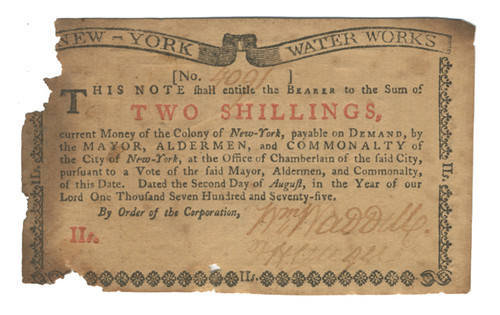 NEW-YORK WATER WORKS
[No. 4091 ]
THIS NOTE ſhall entitle the BEARER to the Sum of
TWO SHILLINGS,
current Money of the Colony of New-York, payable on DEMAND, by
the MAYOR, ALDERMEN, and COMMONALTY of
the City of New-York, at the Office of Chamberlain of the ſaid City,
purſuant to a Vote of the ſaid Mayor, Aldermen, and Commonalty,
of this Date. Dated the Second Day of Auguſt, in the Year of our
Lord One Thouſand Seven Hundred and Seventy-five.
By Order of the Corporation,
Wm Waddell
IIſ.
IIſ.
IIſ.
IIſ.